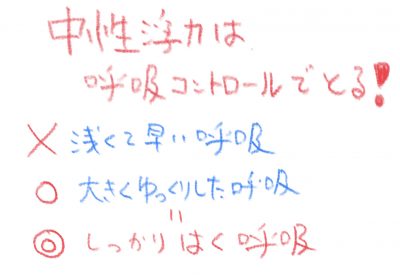 中性浮力は
呼吸コントロールでとる!
× 浅くて早い呼吸
○ 大きくゆっくりした呼吸
=
◎ しっかりはく呼吸